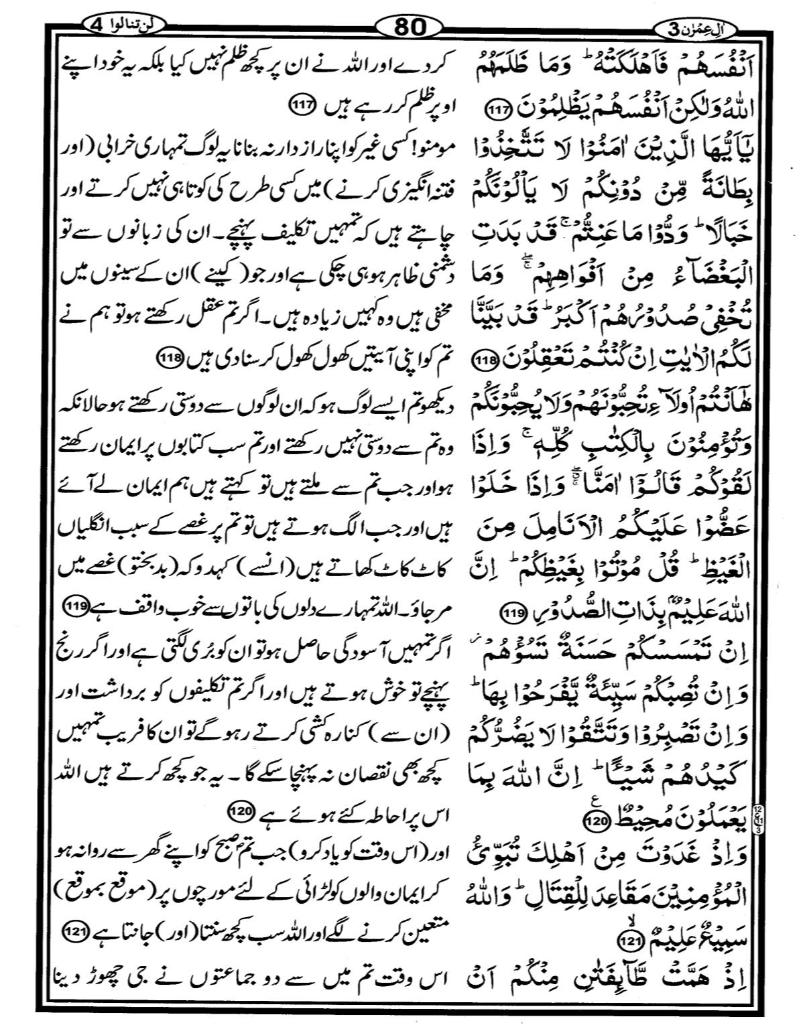 اٰلِ عِمْرٰن 3
80
لن تنالوا 4
اَنْفُسَهُمْ فَاَهْلَكَتْهُ ؕ وَمَا ظَلَمَهُمُ
اللّٰهُ وَلٰكِنْ اَنْفُسَهُمْ يَظْلِمُوْنَ 117
يٰۤاَيُّهَا الَّذِيْنَ اٰمَنُوْا لَا تَتَّخِذُوْا
بِطَانَةً مِّنْ دُوْنِكُمْ لَا يَاْلُوْنَكُمْ
خَبَالًا ؕ وَدُّوْا مَا عَنِتُّمْ ۚ قَدْ بَدَتِ
الْبَغْضَآءُ مِنْ اَفْوَاهِهِمْ ۖۚ وَمَا
تُخْفِيْ صُدُوْرُهُمْ اَكْبَرُ ؕ قَدْ بَيَّنَّا
لَكُمُ الْاٰيٰتِ اِنْ كُنْتُمْ تَعْقِلُوْنَ 118
هٰۤاَنْتُمْ اُولَآءِ تُحِبُّوْنَهُمْ وَلَا يُحِبُّوْنَكُمْ
وَتُؤْمِنُوْنَ بِالْكِتٰبِ كُلِّهٖ ۚ وَاِذَا
لَقُوْكُمْ قَالُوْۤا اٰمَنَّا ۖۚ وَاِذَا خَلَوْا
عَضُّوْا عَلَيْكُمُ الْاَنَامِلَ مِنَ
الْغَيْظِ ؕ قُلْ مُوْتُوْا بِغَيْظِكُمْ ؕ اِنَّ
اللّٰهَ عَلِيْمٌۢ بِذَاتِ الصُّدُوْرِ 119
اِنْ تَمْسَسْكُمْ حَسَنَةٌ تَسُؤْهُمْ ز
وَاِنْ تُصِبْكُمْ سَيِّئَةٌ يَّفْرَحُوْا بِهَا ؕ
وَاِنْ تَصْبِرُوْا وَتَتَّقُوْا لَا يَضُرُّكُمْ
كَيْدُهُمْ شَيْـًٔا ؕ اِنَّ اللّٰهَ بِمَا
يَعْمَلُوْنَ مُحِيْطٌ ع 120
وَاِذْ غَدَوْتَ مِنْ اَهْلِكَ تُبَوِّئُ
الْمُؤْمِنِيْنَ مَقَاعِدَ لِلْقِتَالِ ؕ وَاللّٰهُ
سَمِيْعٌ عَلِيْمٌ ۙ 121
اِذْ هَمَّتْ طَّآئِفَتٰنِ مِنْكُمْ اَنْ
کر دے اور اللہ نے ان پر کچھ ظلم نہیں کیا بلکہ یہ خود اپنے
اوپر ظلم کر رہے ہیں 117
مومنو! کسی غیر کو اپنا راز دار نہ بنانا یہ لوگ تمہاری خرابی (اور
فتنہ انگیزی کرنے) میں کسی طرح کی کوتاہی نہیں کرتے اور
چاہتے ہیں کہ تمہیں تکلیف پہنچے۔ ان کی زبانوں سے تو
دشمنی ظاہر ہو ہی چکی ہے اور جو (کینے) ان کے سینوں میں
مخفی ہیں وہ کہیں زیادہ ہیں۔ اگر تم عقل رکھتے ہو تو ہم نے
تم کو اپنی آیتیں کھول کھول کر سنا دی ہیں 118
دیکھو تم ایسے لوگ ہو کہ ان لوگوں سے دوستی رکھتے ہو حالانکہ
وہ تم سے دوستی نہیں رکھتے اور تم سب کتابوں پر ایمان رکھتے
ہو اور جب تم سے ملتے ہیں تو کہتے ہیں ہم ایمان لے آئے
ہیں اور جب الگ ہوتے ہیں تو تم پر غصے کے سبب انگلیاں
کاٹ کاٹ کھاتے ہیں (ان سے) کہدو کہ (بدبختو) غصے میں
مر جاؤ۔ اللہ تمہارے دلوں کی باتوں سے خوب واقف ہے 119
اگر تمہیں آسودگی حاصل ہو تو ان کو بُری لگتی ہے اور اگر رنج
پہنچے تو خوش ہوتے ہیں اور اگر تم تکلیفوں کو برداشت اور
(ان سے) کنارہ کشی کرتے رہو گے تو ان کا فریب تمہیں
کچھ بھی نقصان نہ پہنچا سکے گا ۔ یہ جو کچھ کرتے ہیں اللہ
اس پر احاطہ کئے ہوئے ہے 120
اور (اس وقت کو یاد کرو) جب تم صبح کو اپنے گھر سے روانہ ہو
کر ایمان والوں کو لڑائی کے لئے مورچوں پر (موقع بموقع)
متعین کرنے لگے اور اللہ سب کچھ سنتا (اور) جانتا ہے 121
اس وقت تم میں سے دو جماعتوں نے جی چھوڑ دینا